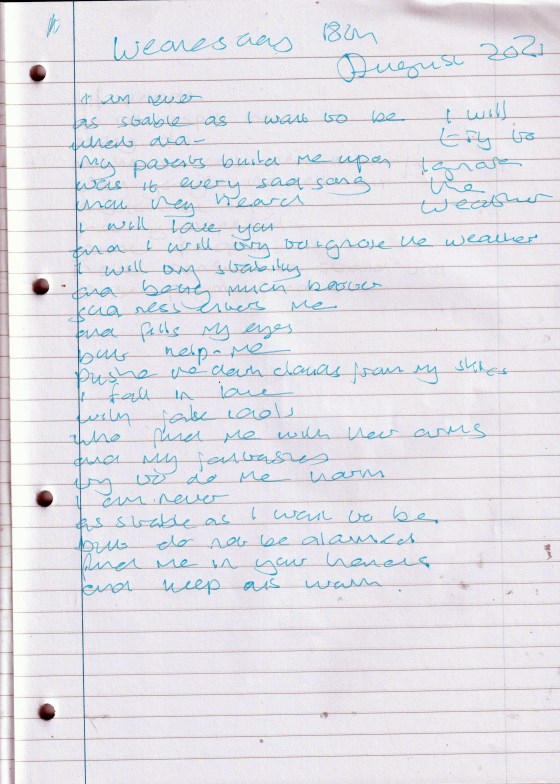 Wednesday 18th
August 2021
I am never
as stable as I want to be
what did
my parents build me upon
was it every sad song
that they heard
I will love you
and I will try to ignore the weather
I will try stability
and being much better
sadness enters me
and fills my eyes
but help me
push the dark clouds from my skies
I fall in love
with false idols
who find me with their arms
and my fantasies
try to do me harm
I am never
as stable as I want to be
but do not be alarmed
find me in your hands
and keep us warm.
I will
try to
ignore
the
weather